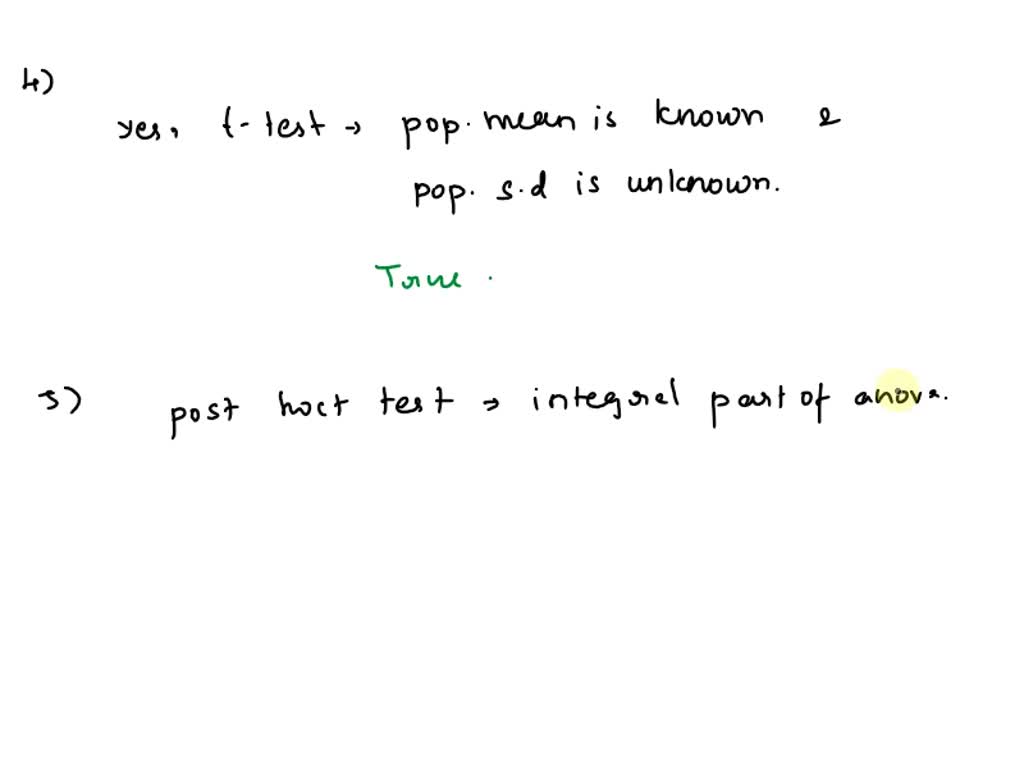 4)
yes, t-test → pop. mean is known &
pop. s.d is unknown.
True.
5) post hoct test → integral part of anova.